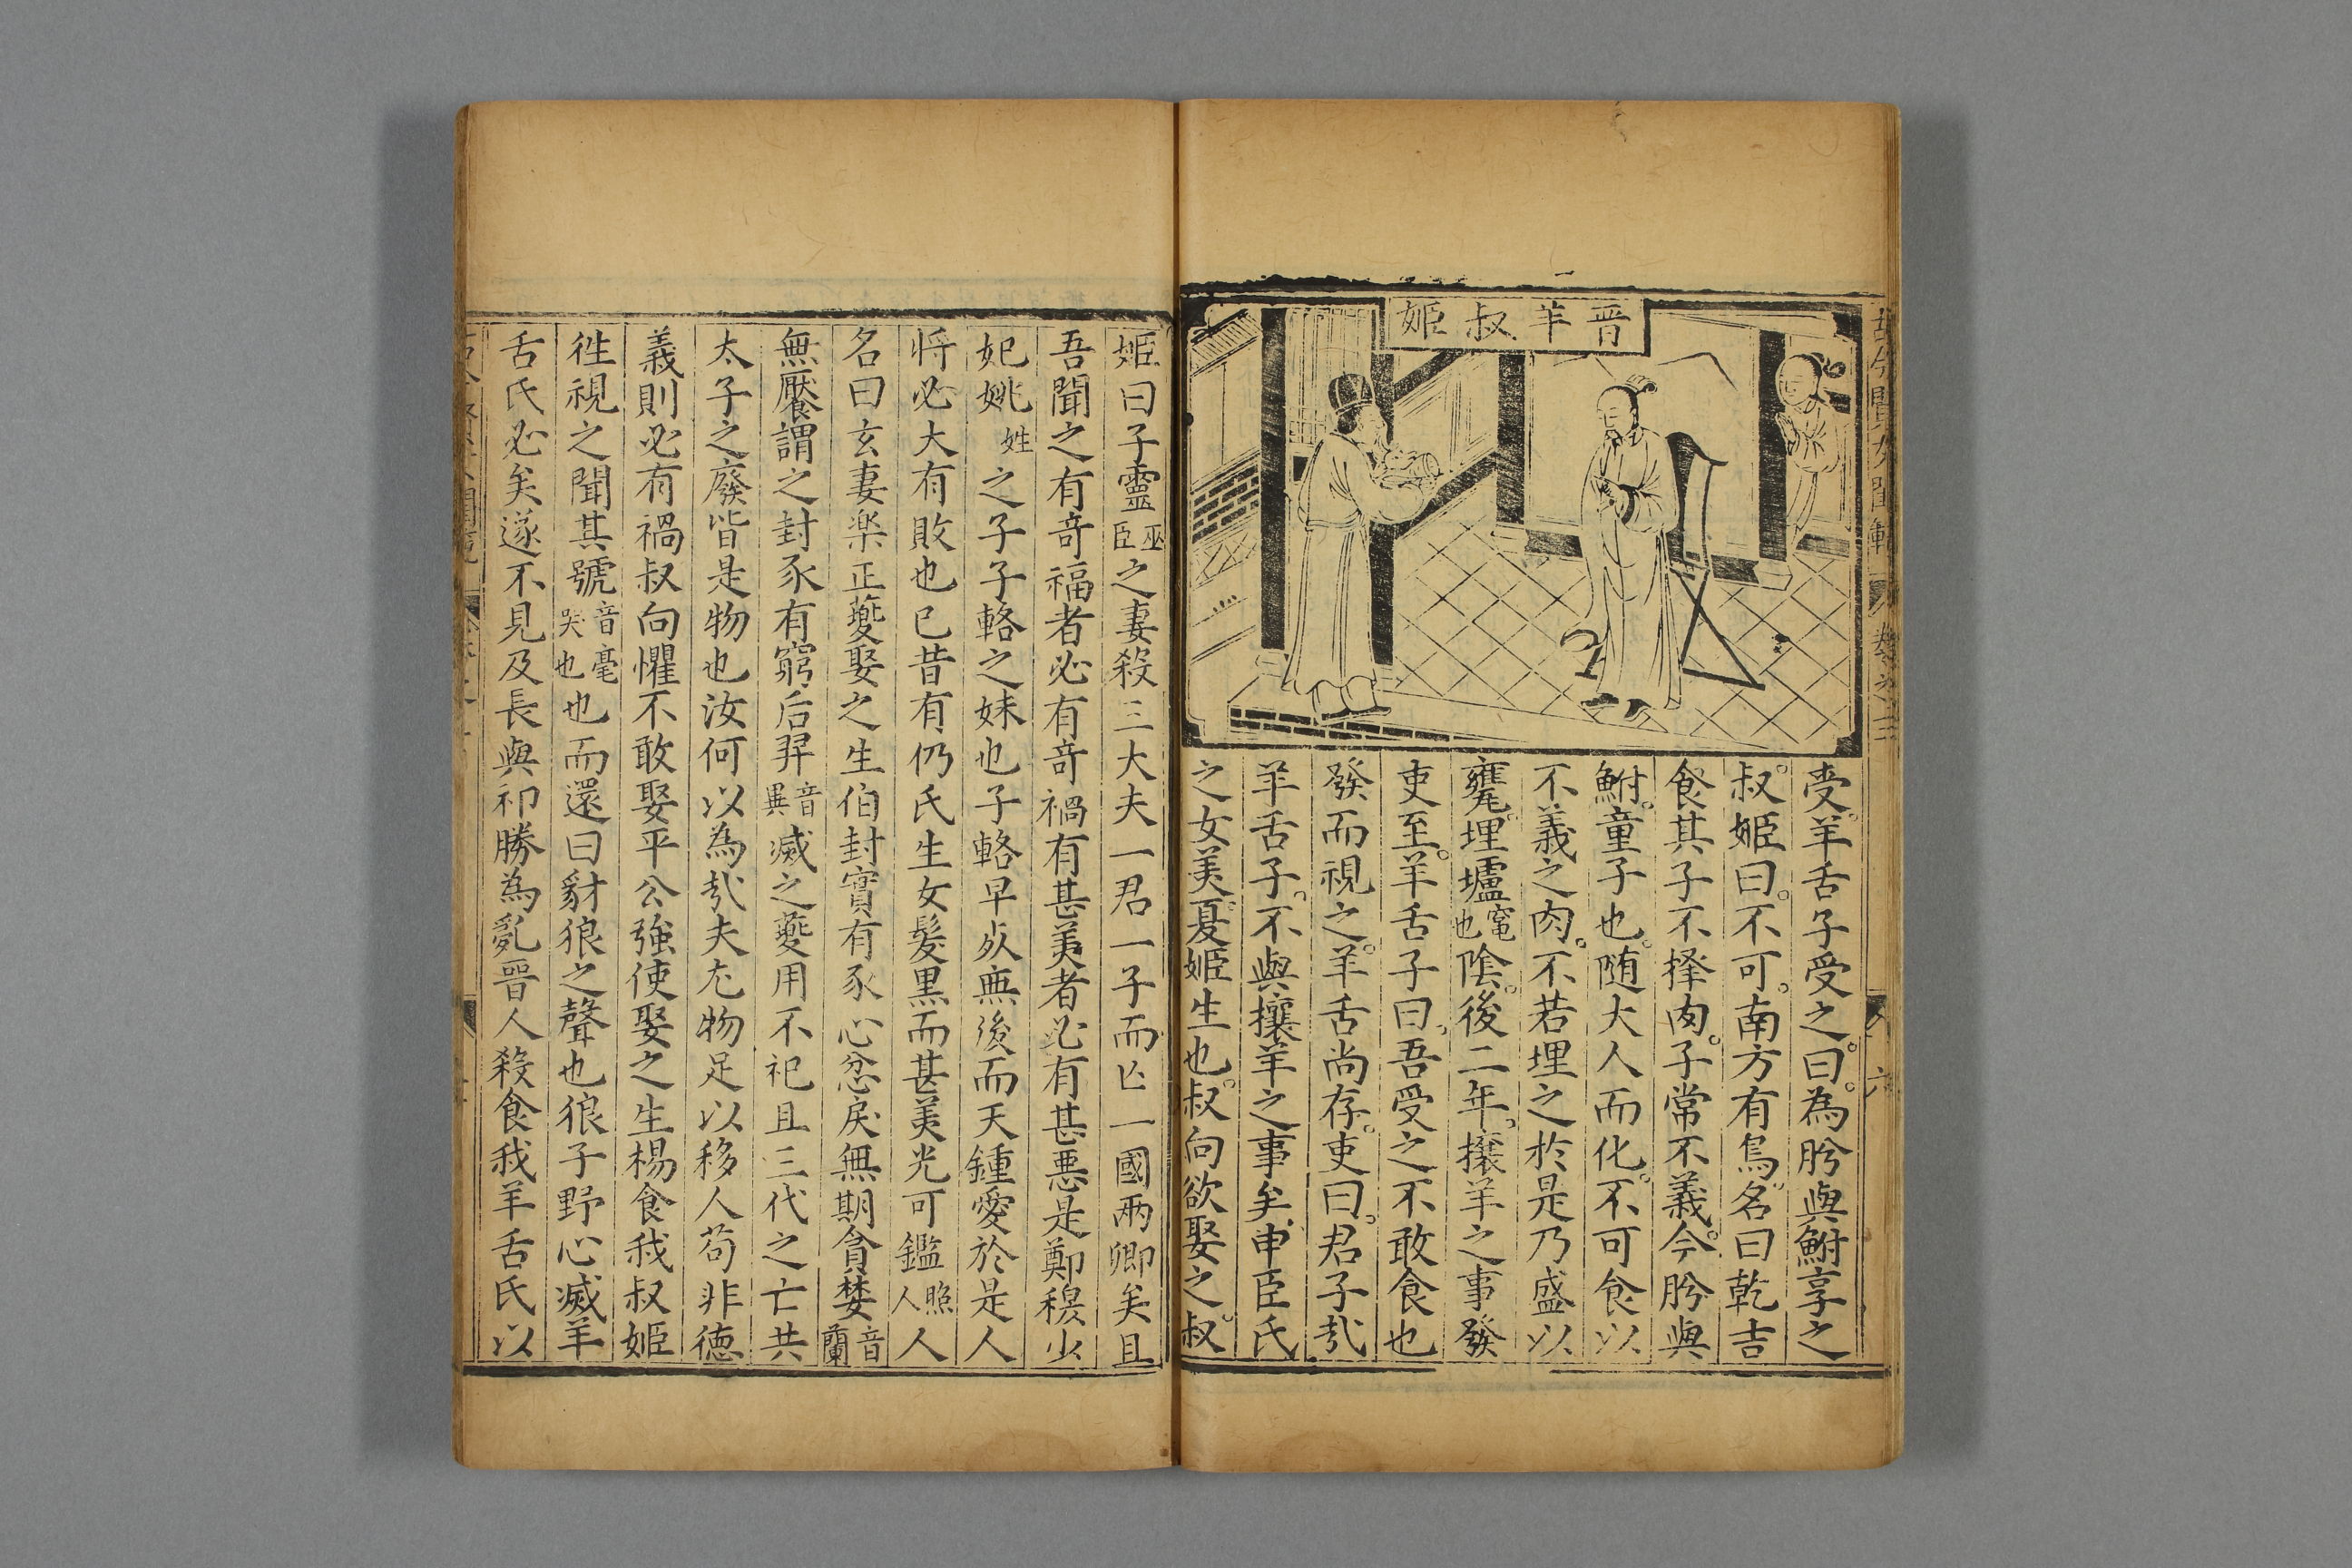 晋羊叔姬
受羊舌子受之曰為肸與鮒享之
叔姬曰不可南方有鳥名曰乾吉
食其子不擇肉子常不義今肸與
鮒童子也随大人而化不可食以
不義之肉不若埋之於是乃盛以
甕埋壚竃也陰後二年攘羊之事發
吏至羊舌子曰吾受之不敢食也
發而視之羊舌尚存吏曰君子㢤
羊舌子不與攘羊之事矣申臣氏
之女美夏姬生也叔向欲娶之叔
姬曰子靈巫臣之妻殺三大夫一君一子而亡一國兩卿矣且
吾聞之有竒福者必有竒禍有甚羙者必有甚悪是鄭穆少
妃姚姓之子子輅之妹也子輅早歿無後而天鍾愛於是人
将必大有敗也已昔有仍氏生女髮黒而甚美光可鑑照人人
名曰玄妻楽正夔娶之生伯封實有豕心忿戾無期貪婪音蘭
無厭謂之封豕有窮后羿音異滅之夔用不祀且三代之亡共
太子之廢皆是物也汝何以為㢤夫尤物足以移人苟非德
義則必有禍叔向懼不敢娶平公強使娶之生楊食我叔姬
徃視之聞其號音毫哭也也而還曰豺狼之聲也狼子野心滅羊
舌氏必矣遂不見及長與祁勝為亂晋人殺食我羊舌氏以